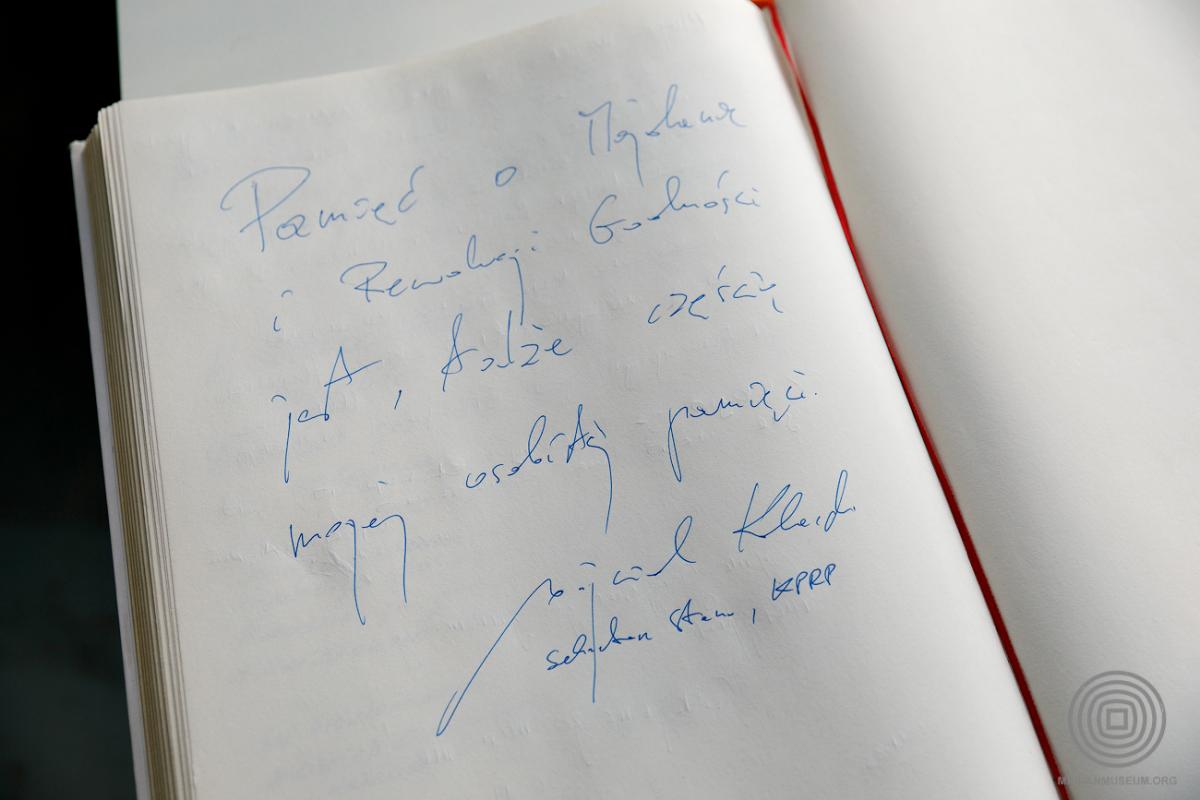 Pamięć o Majdanie
i Rewolucji Godności
jest, także częścią
mojej osobistej pamięci.
Wojciech Kolarski
sekretarz stanu, KPRP
MAIDANMUSEUM.ORG